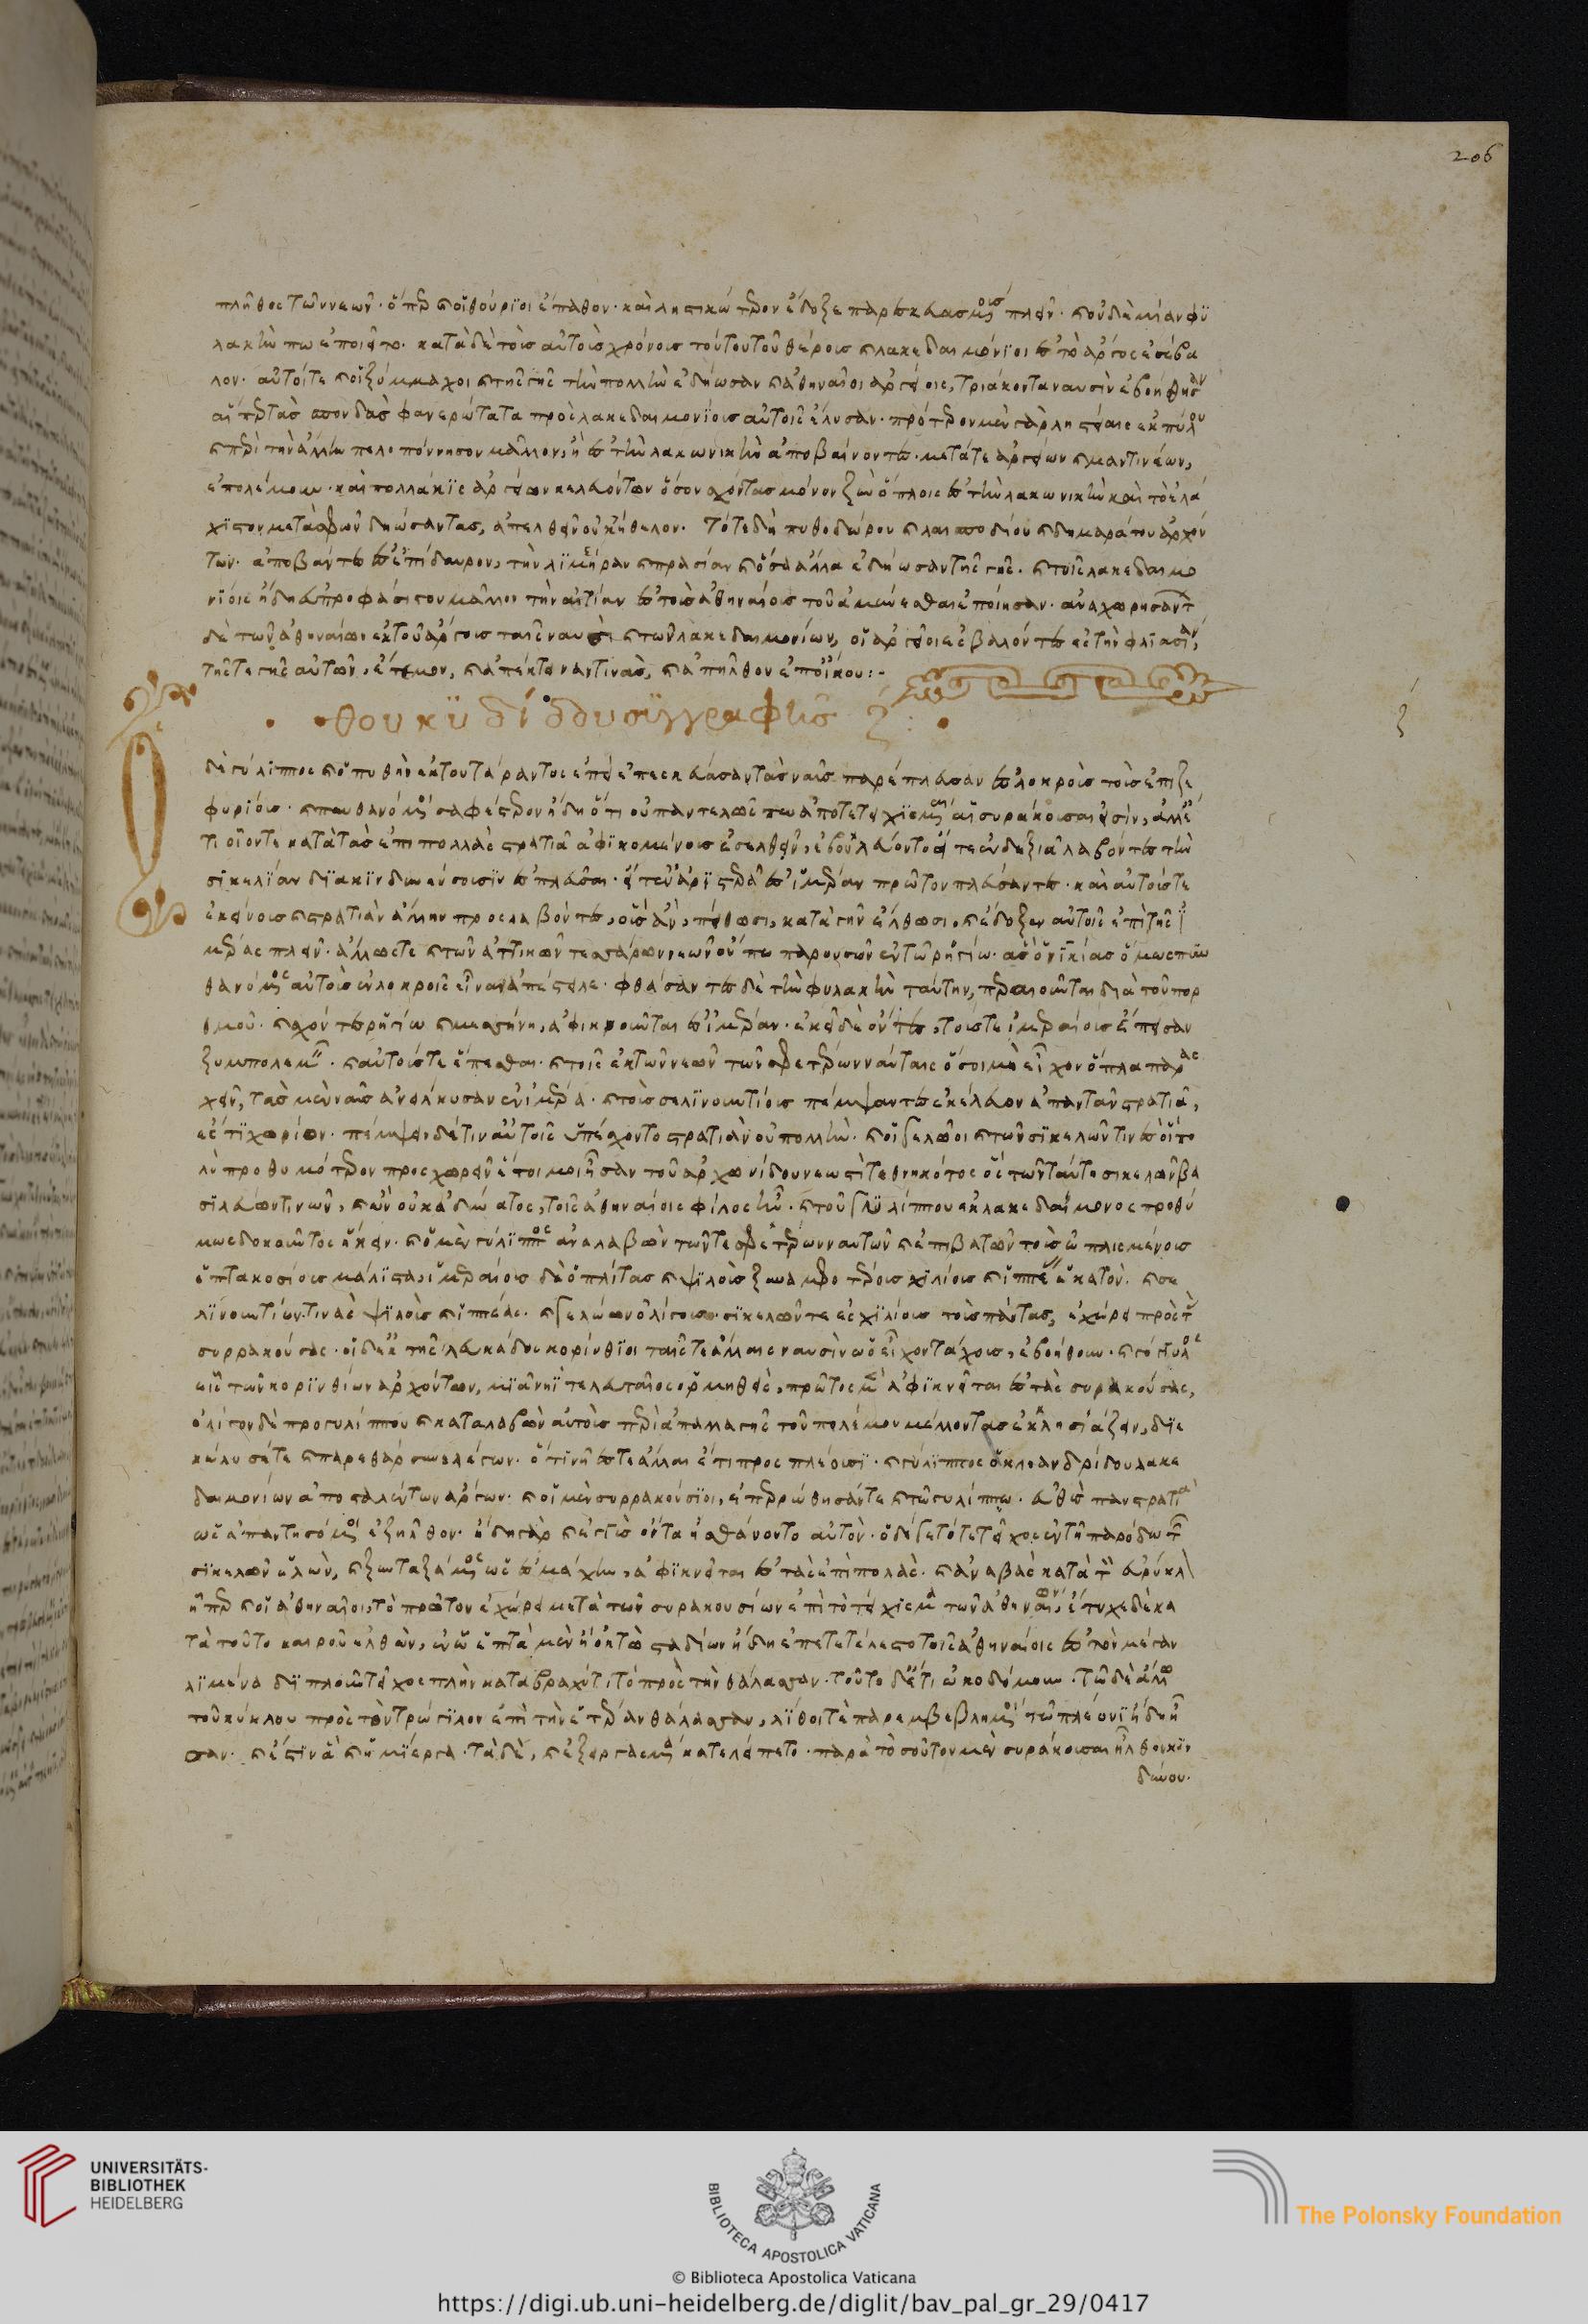 206
πλῆθος τῶν νεῶν· ὅπερ καὶ οἱ θούριοι ἔπαθον· καὶ ληστικώτερον ἔδοξε παρεσκευασμένους πλεῖν· καὶ οὐδεμίαν φυ
λακήν πω ἐποιεῖτο· κατὰ δὲ τοὺς αὐτοὺς χρόνους τούτου τοῦ θέρους καὶ λακεδαιμόνιοι ἐς τὸ ἄργος ἐσέβα
λον· αὐτοί τε καὶ οἱ ξύμμαχοι καὶ τῆς γῆς τὴν πολλὴν ἐδήωσαν καὶ ἀθηναῖοι ἀργείοις, τριάκοντα ναυσὶν ἐβοήθησαν
αἵπερ τὰς σπονδὰς φανερώτατα πρὸς λακεδαιμονίους αὐτοῖς ἔλυσαν· πρότερον μὲν γὰρ ληστείαις ἐκ πύλου
καὶ περὶ τὴν ἄλλην πελοπόννησον μᾶλλον, ἢ ἐς τὴν λακωνικὴν ἀποβαίνοντες· μετά τε ἀργείων καὶ μαντινέων,
ἐπολέμουν· καὶ πολλάκις ἀργείων κελευόντων ὅσον σχόντας μόνον ξὺν ὅπλοις ἐς τὴν λακωνικὴν καὶ τὸ ἐλά
χιστον μετὰ σφῶν δηώσαντας, ἀπελθεῖν οὐκ ἤθελον· τότε δὴ πυθοδώρου καὶ λαισποδίου καὶ δημαράτου ἀρχόν
των· ἀποβάντες ἐς ἐπίδαυρον, τὴν λιμηρὰν καὶ πρασίαν καὶ ὅσα ἄλλα ἐδήωσαν τῆς γῆς· καὶ τοῖς λακεδαιμο
νίοις ἤδη εὐπροφάσιστον μᾶλλον τὴν αἰτίαν ἐς τοὺς ἀθηναίους τοῦ ἀμύνεσθαι ἐποίησαν· ἀναχωρησάντων
δὲ τῶν ἀθηναίων ἐκ τοῦ ἄργους ταῖς ναυσὶ καὶ τῶν λακεδαιμονίων, οἱ ἀργεῖοι ἐσβαλόντες ἐς τὴν φλιασίαν,
τῆς τε γῆς αὐτῶν, ἔτεμον, καὶ ἀπέκτειναν τινας, καὶ ἀπῆλθον ἐπ' οἴκου:-
θουκυδίδου συγγραφῆς ζ:
Ὁ δὲ γύλιππος καὶ ὁ πυθὴν ἐκ τοῦ τάραντος ἐπεὶ ἐπεσκεύασαν τὰς ναῦς παρέπλευσαν ἐς λοκροὺς τοὺς ἐπιζε
φυρίους· καὶ πυνθανόμενοι σαφέστερον ἤδη ὅτι οὐ παντελῶς πω ἀποτετειχισμέναι αἱ συράκουσαι εἰσὶν, ἀλλ' ἔ
τι οἷόν τε κατὰ τὰς ἐπιπολὰς στρατιᾷ ἀφικομένους ἐσελθεῖν, ἐβουλεύοντο εἴτ' ἐν δεξιᾷ λαβόντες τὴν
σικελίαν διακινδυνεύσουσιν ἐσπλεῦσαι· εἴτ' ἐν ἀριστερᾷ ἐς ἱμέραν πρῶτον πλεύσαντες· καὶ αὐτούς τε
ἐκείνους καὶ στρατιὰν ἄλλην προσλαβόντες, οὓς ἂν, πείθωσι, κατὰ γῆν ἔλθωσι, καὶ ἔδοξεν αὐτοῖς ἐπὶ τῆς ἱ
μέρας πλεῖν· ἄλλως τε καὶ τῶν ἀττικῶν τεσσάρων νεῶν οὔπω παρουσῶν ἐν τῷ ῥηγίῳ· ἃς ὁ νικίας ὅμως πυν
θανόμενος αὐτοὺς ἐν λοκροῖς εἶναι ἀπέστειλε· φθάσαντες δὲ τὴν φυλακὴν ταύτην, περαιοῦνται διὰ τοῦ πορ
θμοῦ· καὶ σχόντες ῥηγίῳ καὶ μεσσήνῃ, ἀφικνοῦνται ἐς ἱμέραν· ἐκεῖ δὲ ὄντες, τούς τε ἱμεραίους ἔπεισαν
ξυμπολεμεῖν· καὶ αὐτούς τε ἕπεσθαι· καὶ τοῖς ἐκ τῶν νεῶν τῶν σφετέρων ναύταις ὅσοι μὴ εἶχον ὅπλα παρασ
χεῖν, τὰς μὲν ναῦς ἀνείλκυσαν ἐν ἱμέρᾳ· καὶ τοὺς σελινουντίους πέμψαντες ἐκέλευον ἀπαντᾶν στρατιᾷ,
ἔς τι χωρίον· πέμψειν δέ τινα αὐτοῖς ὑπέσχοντο στρατιὰν οὐ πολλὴν· καὶ οἱ γελῶοι καὶ τῶν σικελῶν τινες οἳ πο
λὺ προθυμότερον προσχωρεῖν ἕτοιμοι ἦσαν τοῦ ἀρχωνίδου νεωστὶ τεθνηκότος ὃς τῶν ταύτῃ σικελῶν βα
σιλεύων τινῶν, καὶ ὢν οὐκ ἀδύνατος, τοῖς ἀθηναίοις φίλος ἦν· καὶ τοῦ γυλίππου ἐκ λακεδαίμονος προθύ
μως δοκοῦντος ἥκειν· καὶ ὁ μὲν γύλιππος ἀναλαβὼν τῶν τε σφετέρων ναυτῶν καὶ ἐπιβατῶν τοὺς ὡπλισμένους
ἑπτακοσίους μάλιστα, ἱμεραίους δὲ ὁπλίτας καὶ ψιλοὺς ξυναμφοτέρους χιλίους καὶ ἱππέας ἑκατὸν· καὶ σε
λινουντίων τινὰς ψιλοὺς καὶ ἱππέας· καὶ γελῴων ὀλίγους· σικελῶν τε ἐς χιλίους τοὺς πάντας, ἐχώρει πρὸς τὰς
συρρακούσας· οἱ δ' ἐκ τῆς λευκάδος κορίνθιοι ταῖς τε ἄλλαις ναυσὶν ὡς εἶχον τάχους, ἐβοήθουν· καὶ γόγγυλος
εἷς τῶν κορινθίων ἀρχόντων, μιᾷ νηὶ τελευταῖος ὁρμηθεὶς, πρῶτος μὲν ἀφικνεῖται ἐς τὰς συρακούσας,
ὀλίγον δὲ πρὸ γυλίππου καὶ καταλαβὼν αὐτοὺς περὶ ἀπαλλαγῆς τοῦ πολέμου μέλλοντας ἐκκλησιάζειν, διε
κώλυσέ τε καὶ παρεθάρσυνε λέγων· ὅτι νῆές τε ἄλλαι ἔτι προσπλέουσι· καὶ γύλιππος ὁ κλεανδρίδου λακε
δαιμονίων ἀποστειλάντων ἄρχων· καὶ οἱ μὲν συρρακούσιοι, ἐπερρώσθησάν τε καὶ τῷ γυλίππῳ· εὐθὺς πανστρατιᾷ
ὡς ἀπαντησόμενοι ἐξῆλθον· ἤδη γὰρ καὶ ἐγγὺς ὄντα ᾐσθάνοντο αὐτὸν· ὁ δὲ γέτα τότε τεῖχος ἐν τῇ παρόδῳ τῶν
σικελῶν ἑλὼν, καὶ ξυνταξάμενος ὡς ἐς μάχην, ἀφικνεῖται ἐς τὰς ἐπιπολὰς· καὶ ἀναβὰς κατὰ τὸν εὐρύηλ
ᾗπερ καὶ οἱ ἀθηναῖοι, τὸ πρῶτον ἐχώρει μετὰ τῶν συρακουσίων ἐπὶ τὸ τείχισμα τῶν ἀθηναίων, ἔτυχε δὲ κα
τὰ τοῦτο καιροῦ ἐλθὼν, ἐν ᾧ ἑπτὰ μὲν ἢ ὀκτὼ σταδίων ἤδη ἐπετετέλεστο τοῖς ἀθηναίοις ἐς τὸν μέγαν
λιμένα διπλοῦν τεῖχος πλὴν κατὰ βραχύ τι τὸ πρὸς τὴν θάλασσαν· τοῦτο δ' ἔτι ᾠκοδόμουν· τῷ δὲ ἄλλῳ
τοῦ κύκλου πρὸς τὸν τρώγιλον ἐπὶ τὴν ἑτέραν θάλασσαν, λίθοι τε παραβεβλημένοι τῷ πλέονι ἤδη ἦ
σαν· καὶ ἔστιν ἃ καὶ ἡμίεργα· τὰ δὲ, καὶ ἐξειργασμένα κατελείπετο· παρὰ τοσοῦτον μὲν συράκουσαι ἦλθον κιν
δύνου·
ζ
UNIVERSITÄTS-
BIBLIOTHEK
HEIDELBERG
BIBLIOTECA APOSTOLICA VATICANA
The Polonsky Foundation
© Biblioteca Apostolica Vaticana
https://digi.ub.uni-heidelberg.de/diglit/bav_pal_gr_29/0417